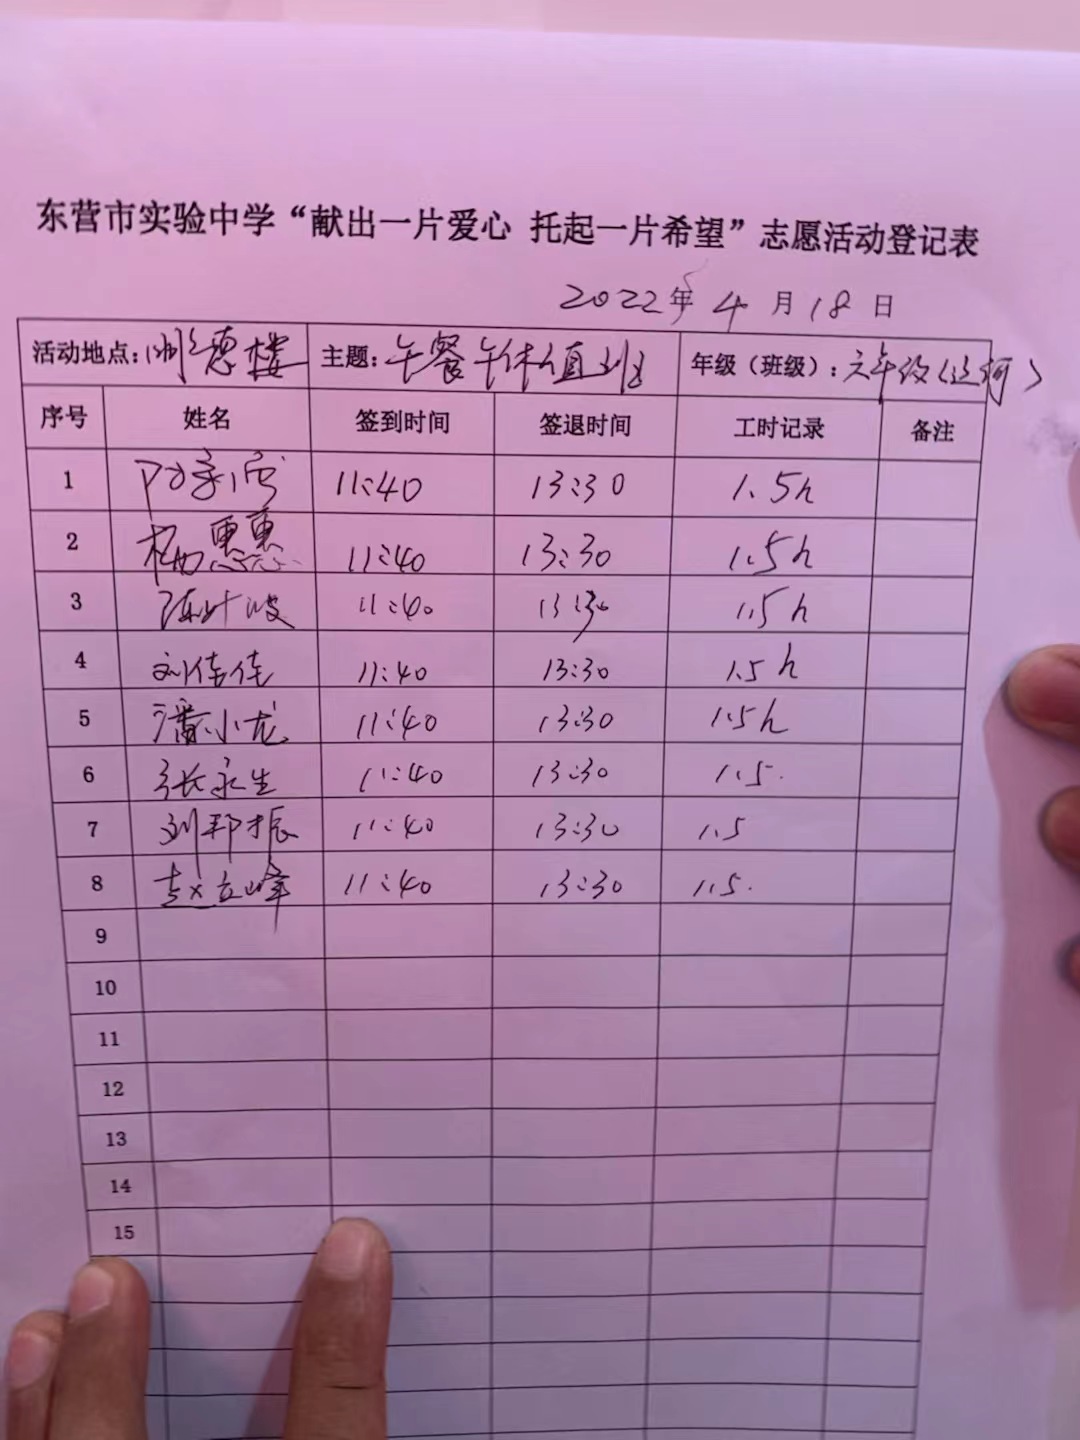 东营市实验中学“献出一片爱心 托起一片希望”志愿活动登记表
2022年 4 月 18 日
活动地点：明德楼 主题：午餐午休值班 年级（班级）：六年级（
序号 姓名 签到时间 签退时间 工时记录 备注
1 11:40 13:30 1.5h
2 杨惠惠 11:40 13:30 1.5h
3 陈叶波 11:40 13:30 1.5h
4 刘佳佳 11:40 13:30 1.5h
5 潘小龙 11:40 13:30 1.5h
6 张永生 11:40 13:30 1.5.
7 刘邦振 11:40 13:30 1.5
8 赵立峰 11:40 13:30 1.5.
9
10
11
12
13
14
15